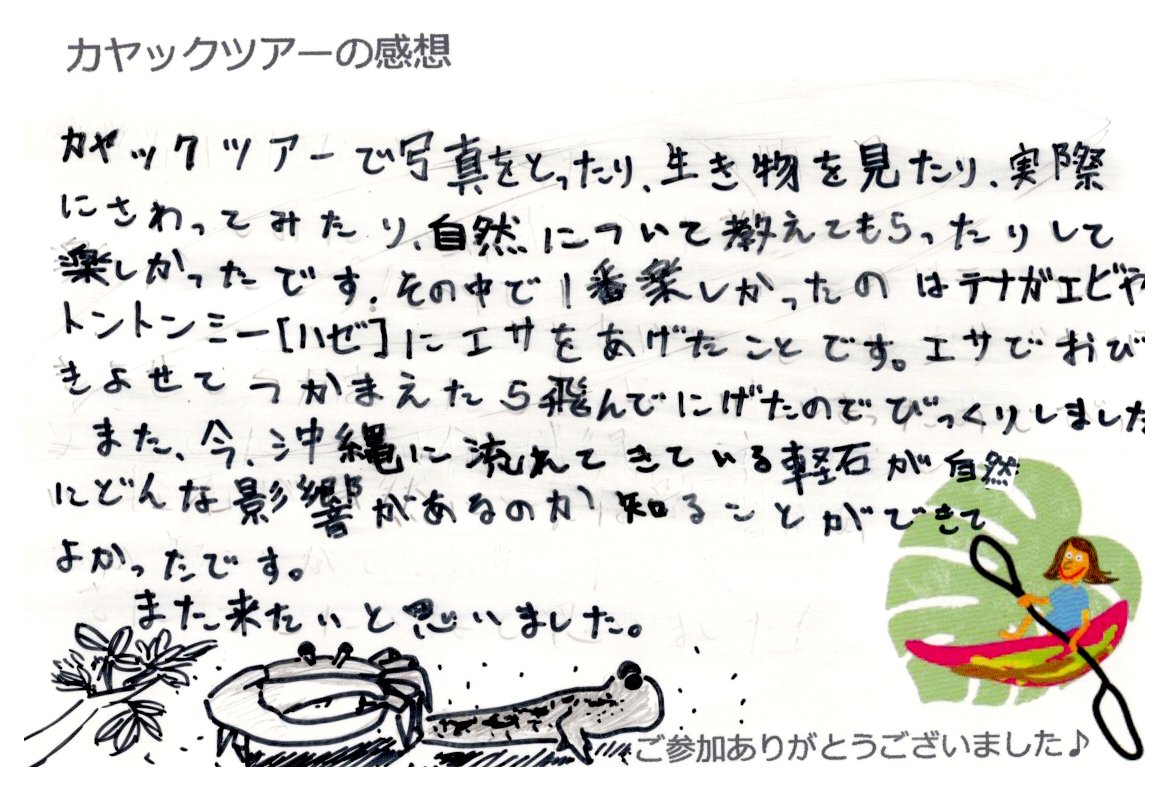 カヤックツアーの感想
カヤックツアーで写真をとったり、生き物を見たり、実際
にさわってみたり、自然について教えてもらったりして
楽しかったです。その中で1番楽しかったのはテナガエビや
トントンミー[ハゼ]にエサをあげたことです。エサでおび
きよせてつかまえたら飛んでにげたのでびっくりしました
また、今、沖縄に流れてきている軽石が自然
にどんな影響があるのか知ることができて
よかったです。
また来たいと思いました。
ご参加ありがとうございました♪